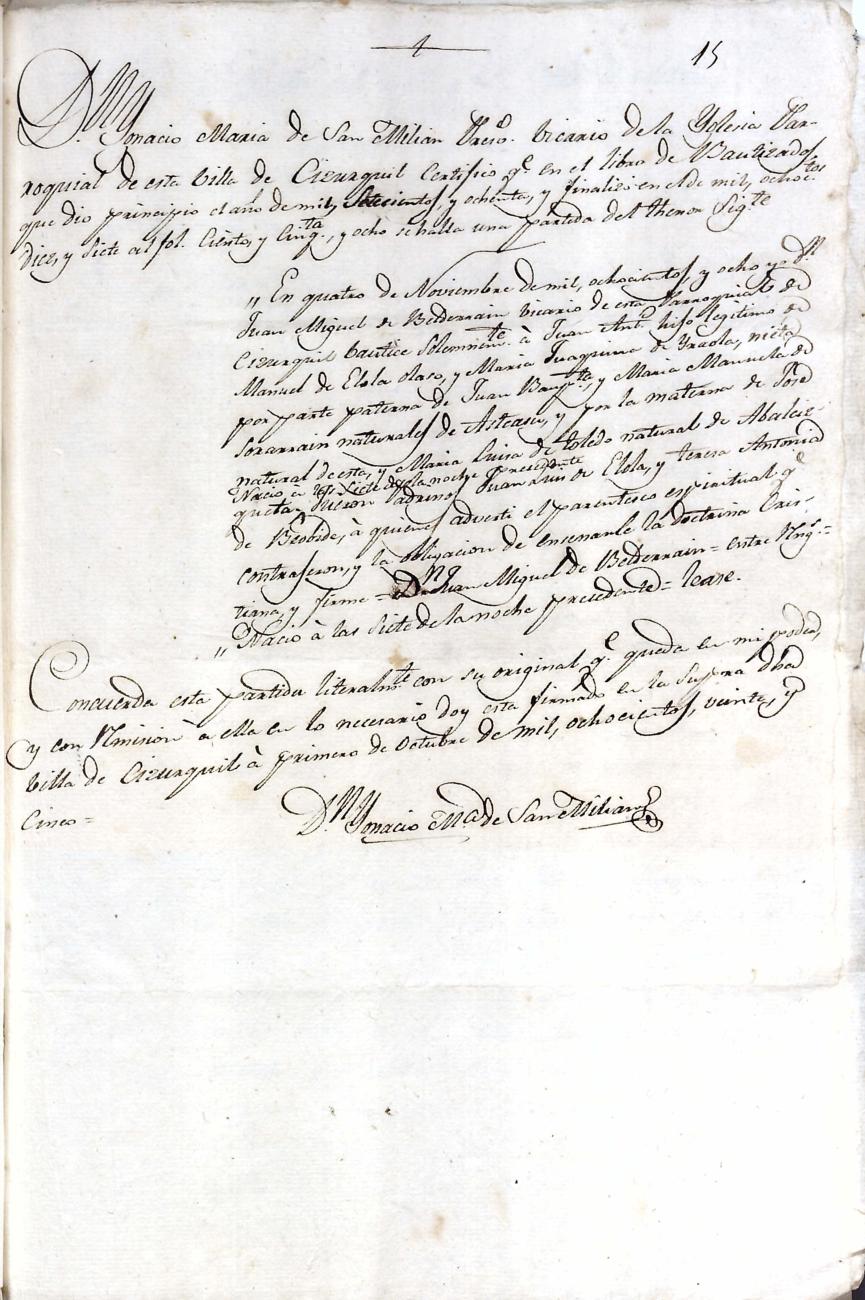 15
Dn. Ygnacio Maria de San Milian Presô. Vicario de la Yglesia Par-
roquial de esta Villa de Cizurquil Certifico qe. en el libro de Bautizados
que dio principio el año de mil, Setecientos, y ochenta, y finalizò en el de mil, ochoctos.
diez, y siete al fol. Ciento, y Cinqta., y ocho se halla una partida del thenor Sigte.
„ En quatro de Noviembre de mil, ochocientos, y ocho yo Dn.
Juan Miguel de Belderrain Vicario de esta Parroquial de
Cizurquil bautice Solemnemte. à Juan Anto. hijo legitimo de
Manuel de Elola olaso, y Maria Juaquina de Yraola, nieto
por parte paterna de Juan Bauta., y Maria Manuela de
Sorarrain naturales de Asteasu, y por la materna de José
natural de esta, y Maria Luisa de toledo natural de Abalcis-
Nacio à las Siete de la noche precedente
queta. Fueron Padrinos Juan Luis de Elola, y teresa Antonia
de Beobide, à quienes adverti el parentesco espiritual qe
contrageron, y la obligacion de enseñarle la doctrina Cris-
tiana, y firme = Dn. Juan Miguel de Belderrain = entre Rengs. =
„ Nacio à las Siete de la noche precedente = lease.
Concuerda esta partida literalmte. con su original qe. queda en mi poder,
y con Remision à ella en lo necesario doy esta firmado en la Supra dha
Villa de Cizurquil à primero de Octubre de mil, ochocientos, veinte, y
Cinco =
Dn. Ygnacio Ma. de San Milian